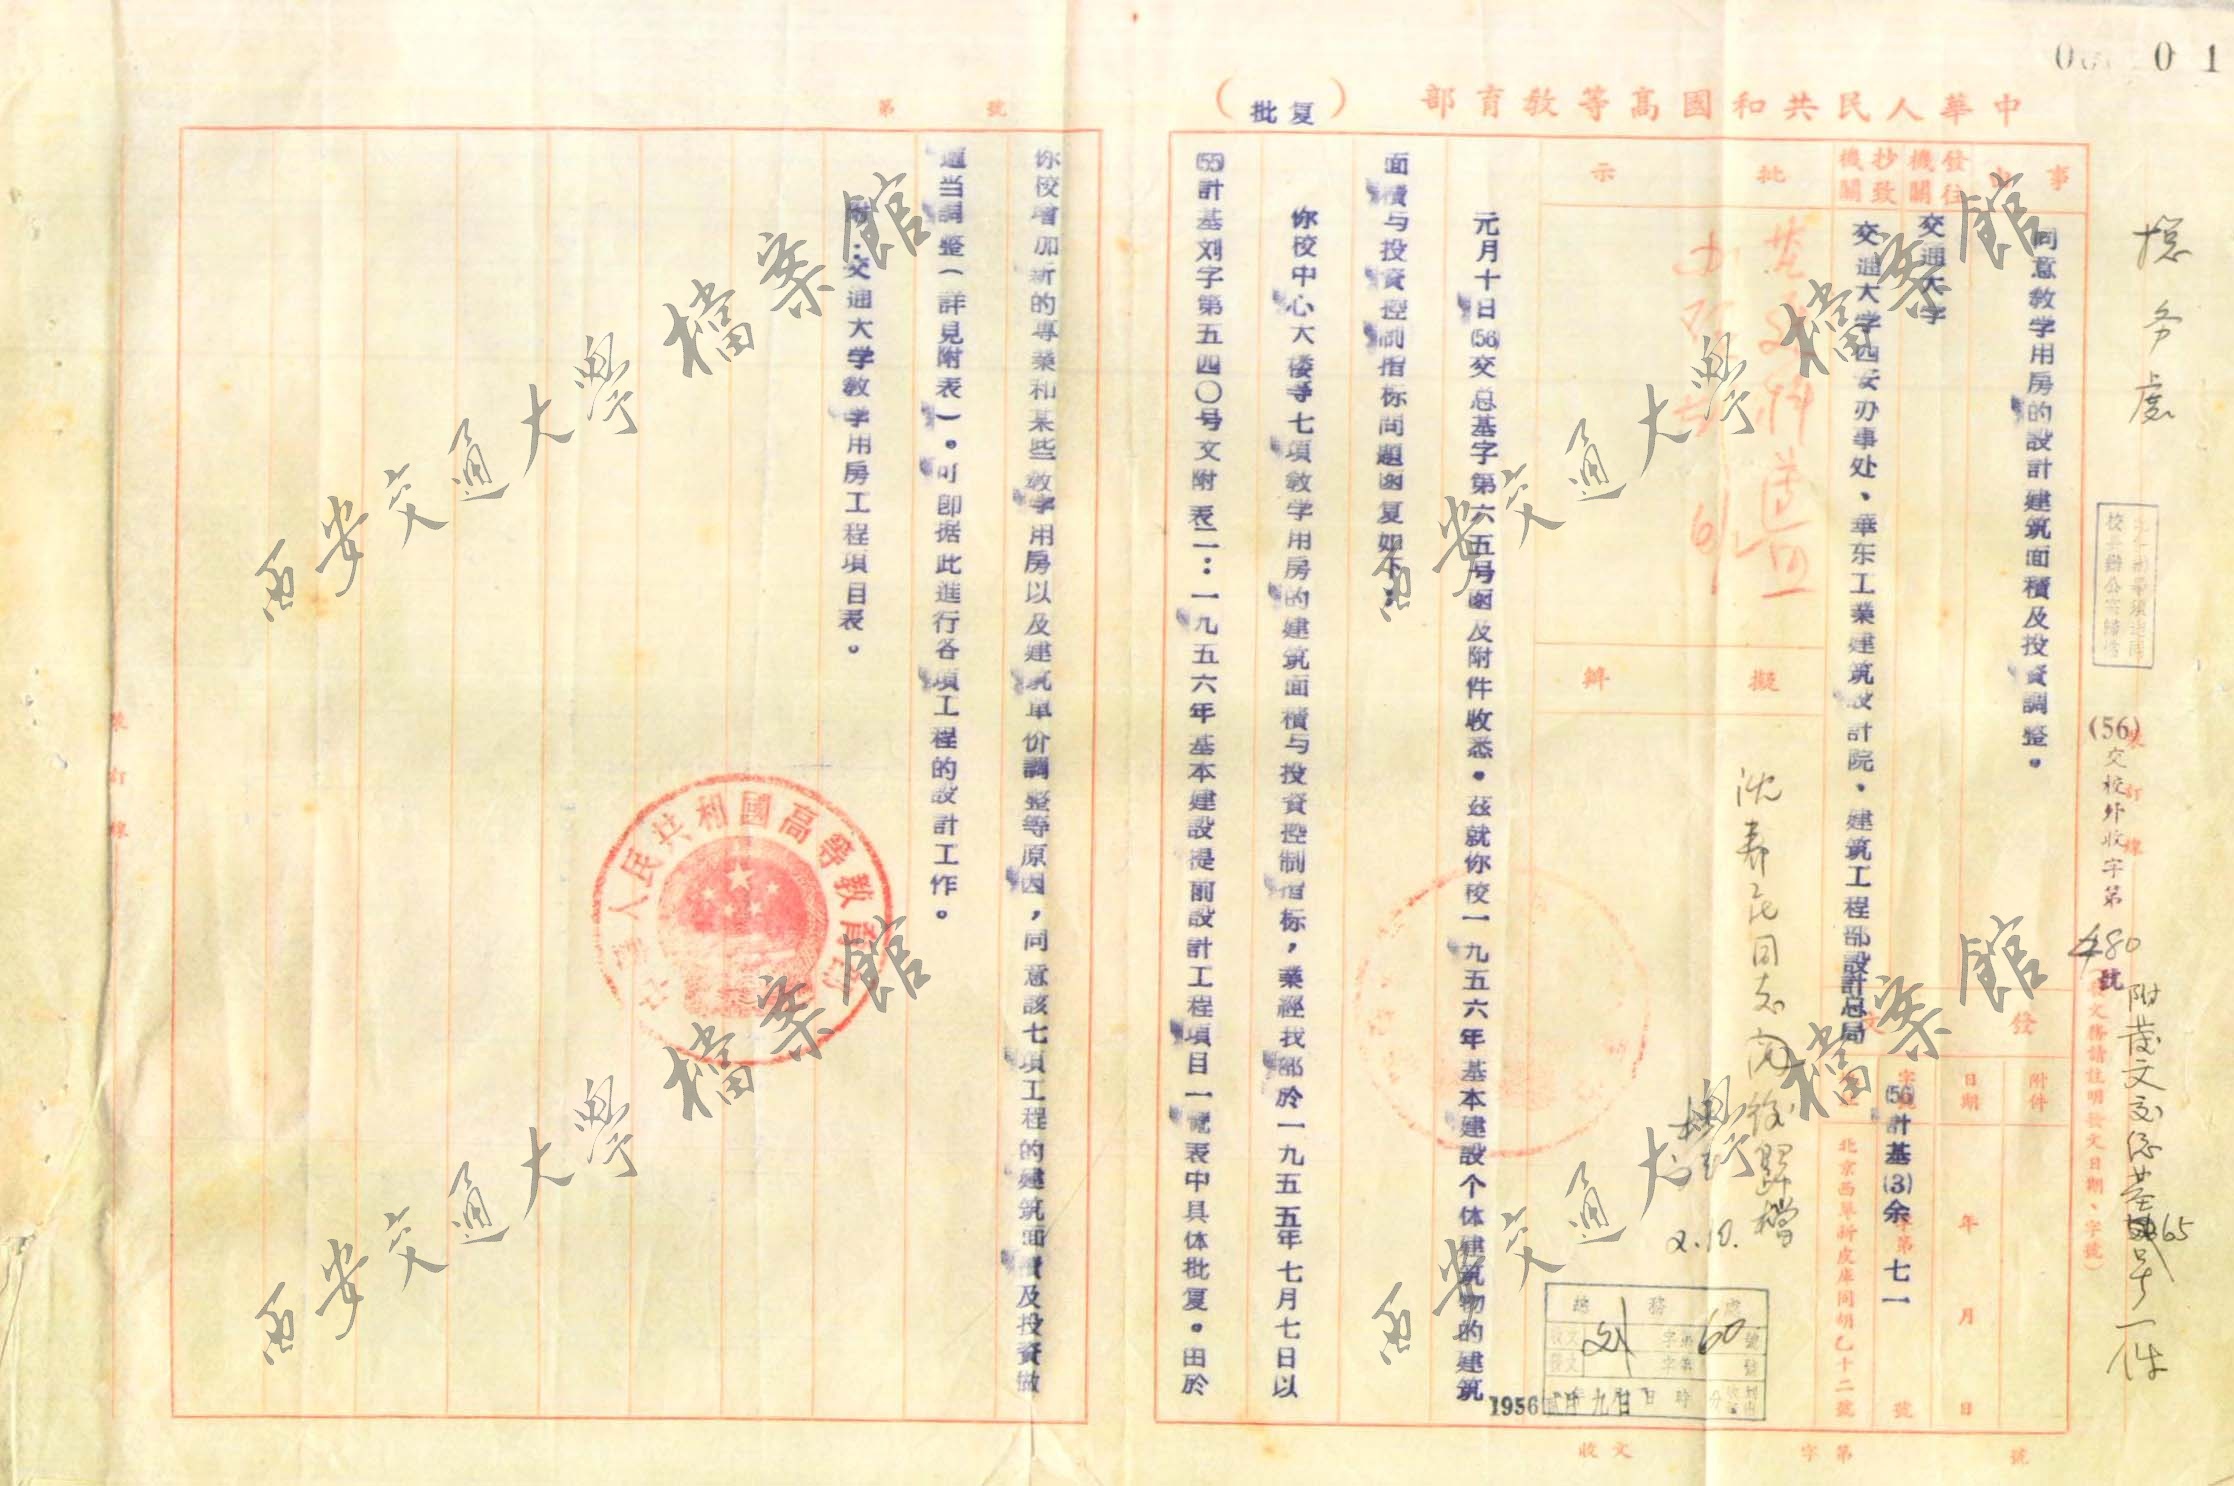 中華人民共和國高等教育部
（批复）
事由
同意教学用房的設計建筑面積及投資調整。
發往機關
交通大学
抄致機關
交通大学西安办事处、華东工業建筑設計院、建筑工程部設計总局
批示
擬辦
發文
附件
日期
年月日
(56)計基(3)余
七一
北京西單新皮庫同胡乙十二號
元月十日(56)交总基字第六五号函及附件收悉。茲就你校一九五六年基本建設个体建筑物的建筑
面積与投資控制指标問題函复如下：
你校中心大楼等七項教学用房的建筑面積与投資控制指标，業經我部於一九五五年七月七日以
(55)計基刘字第五四〇号文附表二：一九五六年基本建設提前設計工程項目一覽表中具体批复。由於
你校增加新的專業和某些教学用房以及建筑單价調整等原因，同意該七項工程的建筑面積及投資做
適当調整（詳見附表）。可即据此進行各項工程的設計工作。
附：交通大学教学用房工程項目表。
中華人民共和國高等教育部
第號
總务處
(56)交校外收字第480號
附發文交总基字65号一件
裝訂線
裝訂線
總務處
60
1956
2.10.
收文字第號
西安交通大學檔案館
西安交通大學檔案館
西安交通大學檔案館
西安交通大學檔案館